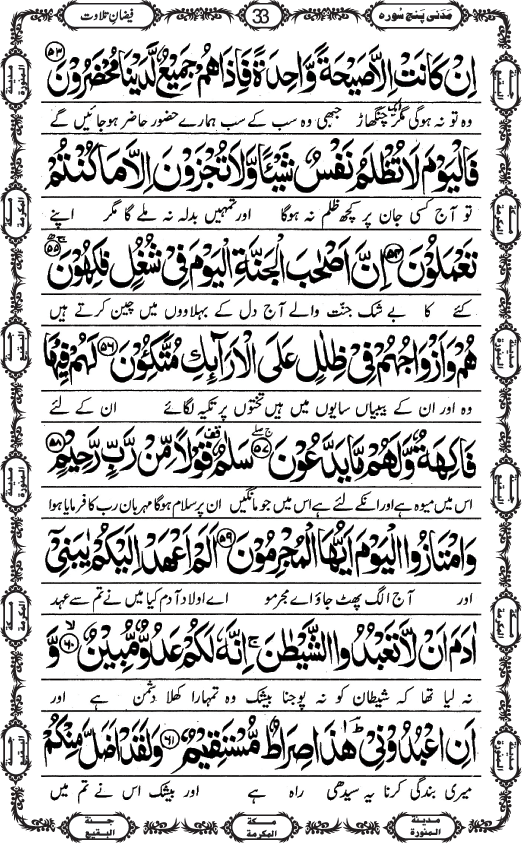 مَدَنی پنج سُورہ
33
فیضانِ تلاوت
اِنْ كَانَتْ اِلَّا صَیْحَةً وَّاحِدَةً فَاِذَا هُمْ جَمِیْعٌ لَّدَیْنَا مُحْضَرُوْنَ ﴿۵۳﴾
وہ تو نہ ہوگی مگر ایک چنگھاڑ جبھی وہ سب کے سب ہمارے حضور حاضر ہو جائیں گے
فَالْیَوْمَ لَا تُظْلَمُ نَفْسٌ شَیْــٴًـا وَّلَا تُجْزَوْنَ اِلَّا مَا كُنْتُمْ
تو آج کسی جان پر کچھ ظلم نہ ہوگا اور تمہیں بدلہ نہ ملے گا مگر اپنے
تَعْمَلُوْنَ ﴿۵۴﴾ اِنَّ اَصْحٰبَ الْجَنَّةِ الْیَوْمَ فِیْ شُغُلٍ فٰكِهُوْنَ ﴿۵۵﴾ۚ
کئے کا بے شک جنّت والے آج دل کے بہلاووں میں چین کرتے ہیں
هُمْ وَ اَزْوَاجُهُمْ فِیْ ظِلٰلٍ عَلَى الْاَرَآىٕكِ مُتَّكِــٴُـوْنَ ﴿۵۶﴾ لَهُمْ فِیْهَا
وہ اور ان کے بیبیاں سایوں میں ہیں تختوں پر تکیہ لگائے ان کے لئے
فَاكِهَةٌ وَّلَهُمْ مَّا یَدَّعُوْنَ ﴿۵۷﴾ۚۖ سَلٰمٌ قف قَوْلًا مِّنْ رَّبٍّ رَّحِیْمٍ ﴿۵۸﴾
اس میں میوہ ہے اور انکے لئے ہے اس میں جو مانگیں ان پر سلام ہوگا مہربان رب کا فرمایا ہوا
وَ امْتَازُوا الْیَوْمَ اَیُّهَا الْمُجْرِمُوْنَ ﴿۵۹﴾ اَلَمْ اَعْهَدْ اِلَیْكُمْ یٰبَنِیْۤ
اور آج الگ پھٹ جاؤ اے مجرمو اے اولادِ آدم کیا میں نے تم سے عہد
اٰدَمَ اَنْ لَّا تَعْبُدُوا الشَّیْطٰنَ ۚ اِنَّهٗ لَكُمْ عَدُوٌّ مُّبِیْنٌ ﴿۶۰﴾ۙ وَّ
نہ لیا تھا کہ شیطان کو نہ پوجنا بیشک وہ تمہارا کھلا دشمن ہے اور
اَنِ اعْبُدُوْنِیْ ؕؔ هٰذَا صِرَاطٌ مُّسْتَقِیْمٌ ﴿۶۱﴾ وَ لَقَدْ اَضَلَّ مِنْكُمْ
میری بندگی کرنا یہ سیدھی راہ ہے اور بیشک اس نے تم میں
جنۃ البقیع
مکۃ المکرمۃ
مدینۃ المنورۃ